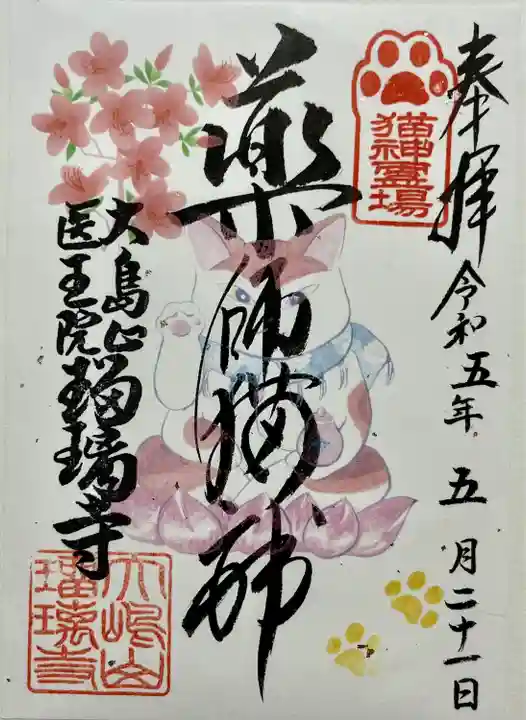 奉拝
令和五年 五月二十一日
猫神霊場
薬師猫神
大島山
医王院
瑠璃寺
大嶋山
瑠璃寺